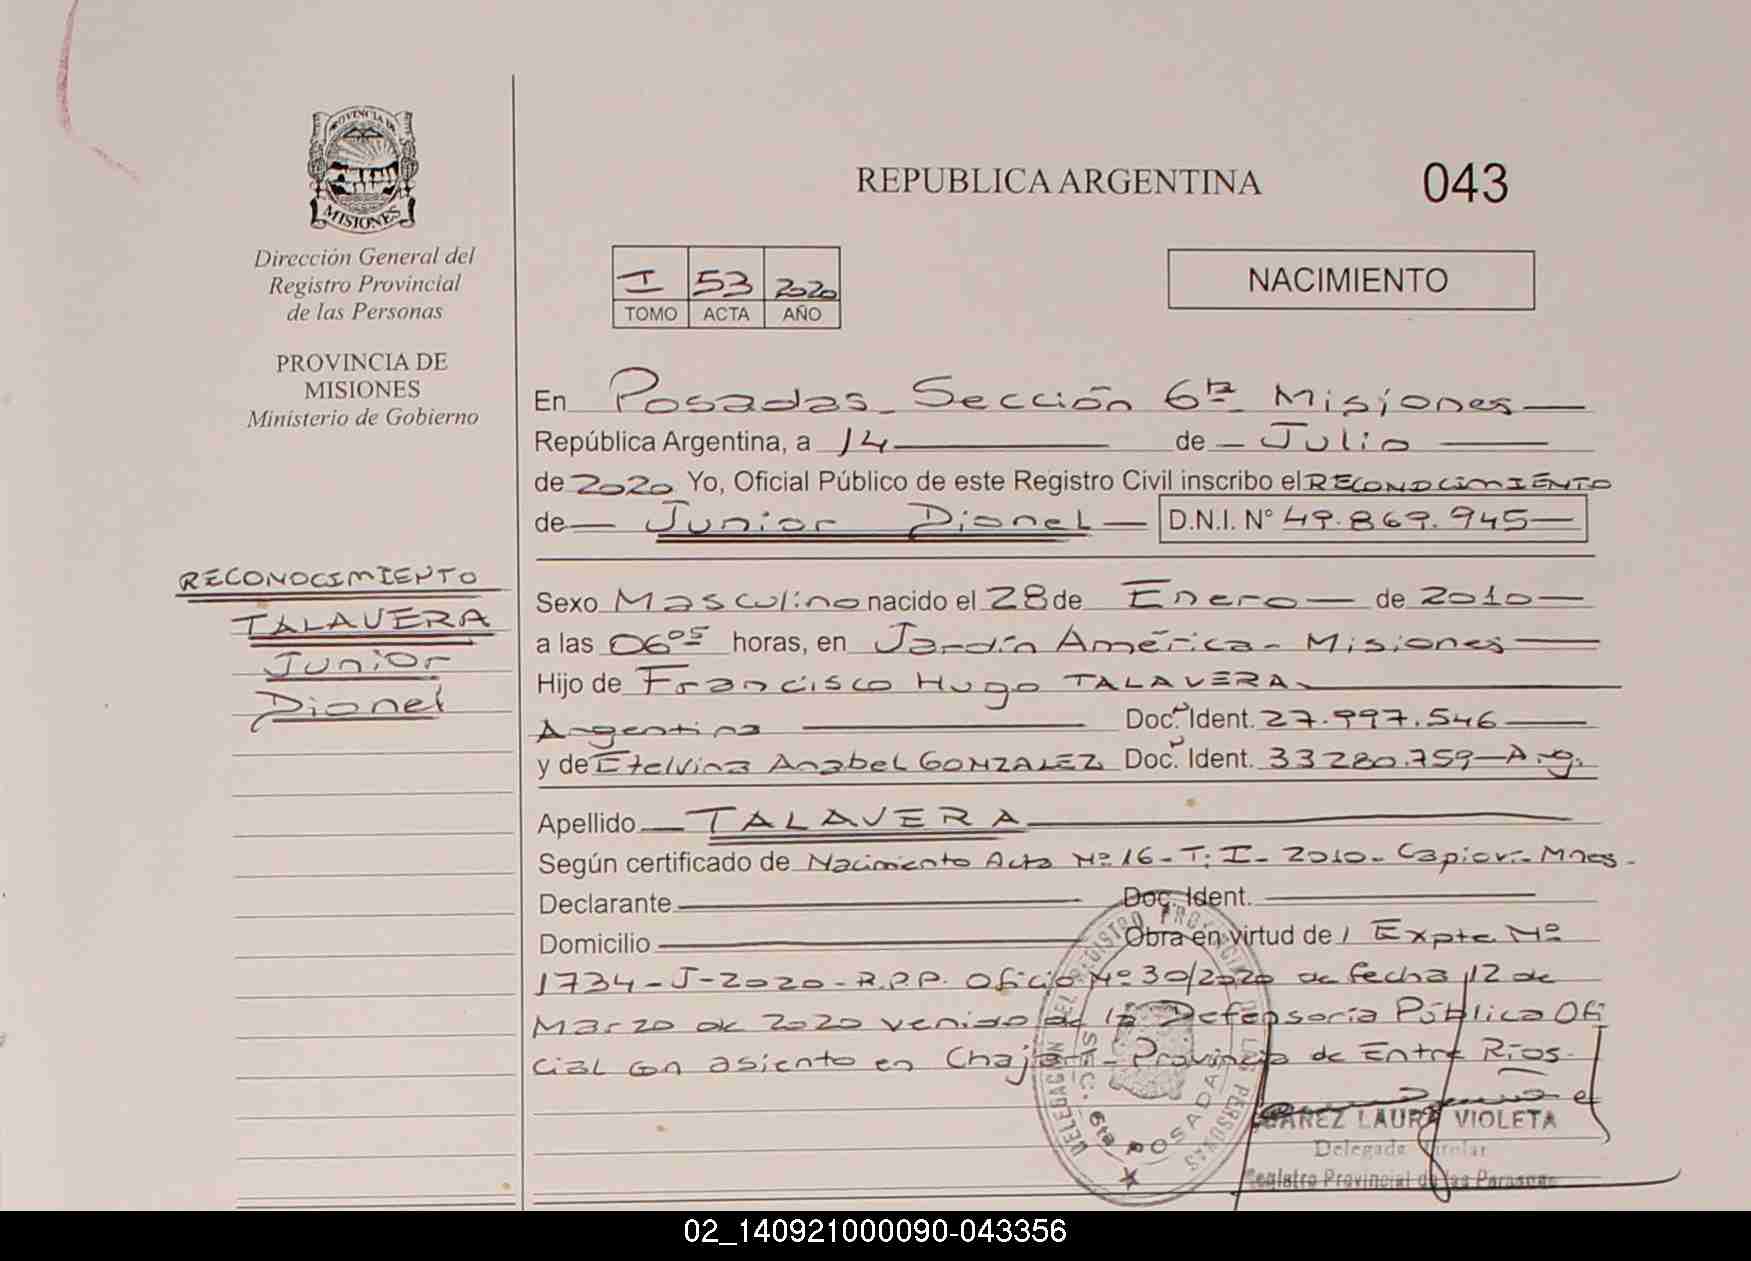 PROVINCIA DE
MISIONES
Dirección General del
Registro Provincial
de las Personas
PROVINCIA DE
MISIONES
Ministerio de Gobierno
RECONOCIMIENTO
TALAVERA
Junior
Dionel
REPUBLICA ARGENTINA
043
I 53 2020
TOMO ACTA AÑO
NACIMIENTO
En Posadas - Sección 6ta Misiones
República Argentina, a 14 de Julio
de 2020 Yo, Oficial Público de este Registro Civil inscribo el RECONOCIMIENTO
de Junior Dionel D.N.I. N° 49.869.945
Sexo Masculino nacido el 28 de Enero de 2010
a las 06 05 horas, en Jardín América - Misiones
Hijo de Francisco Hugo TALAVERA
Argentina Doc. Ident. 27.997.546
y de Etelvina Anabel GONZALEZ Doc. Ident. 33280.759 - Arg.
Apellido TALAVERA
Según certificado de Nacimiento Acta Nº 16 - T: I - 2010 - Capioví - Mnes.
Declarante Doc. Ident.
Domicilio Obra en virtud de Expte Nº
1734-J-2020-R.P.P. Oficio Nº 30/2020 de fecha 12 de
Marzo de 2020 venido de la Defensoría Pública Ofi
cial con asiento en Chajarí - Provincia de Entre Ríos.
DELEGACION DEL REGISTRO PROVINCIAL DE LAS PERSONAS
SEC. 6ta POSADAS
LAURA VIOLETA
Delegada Titular
Registro Provincial de las Personas
02_140921000090-043356